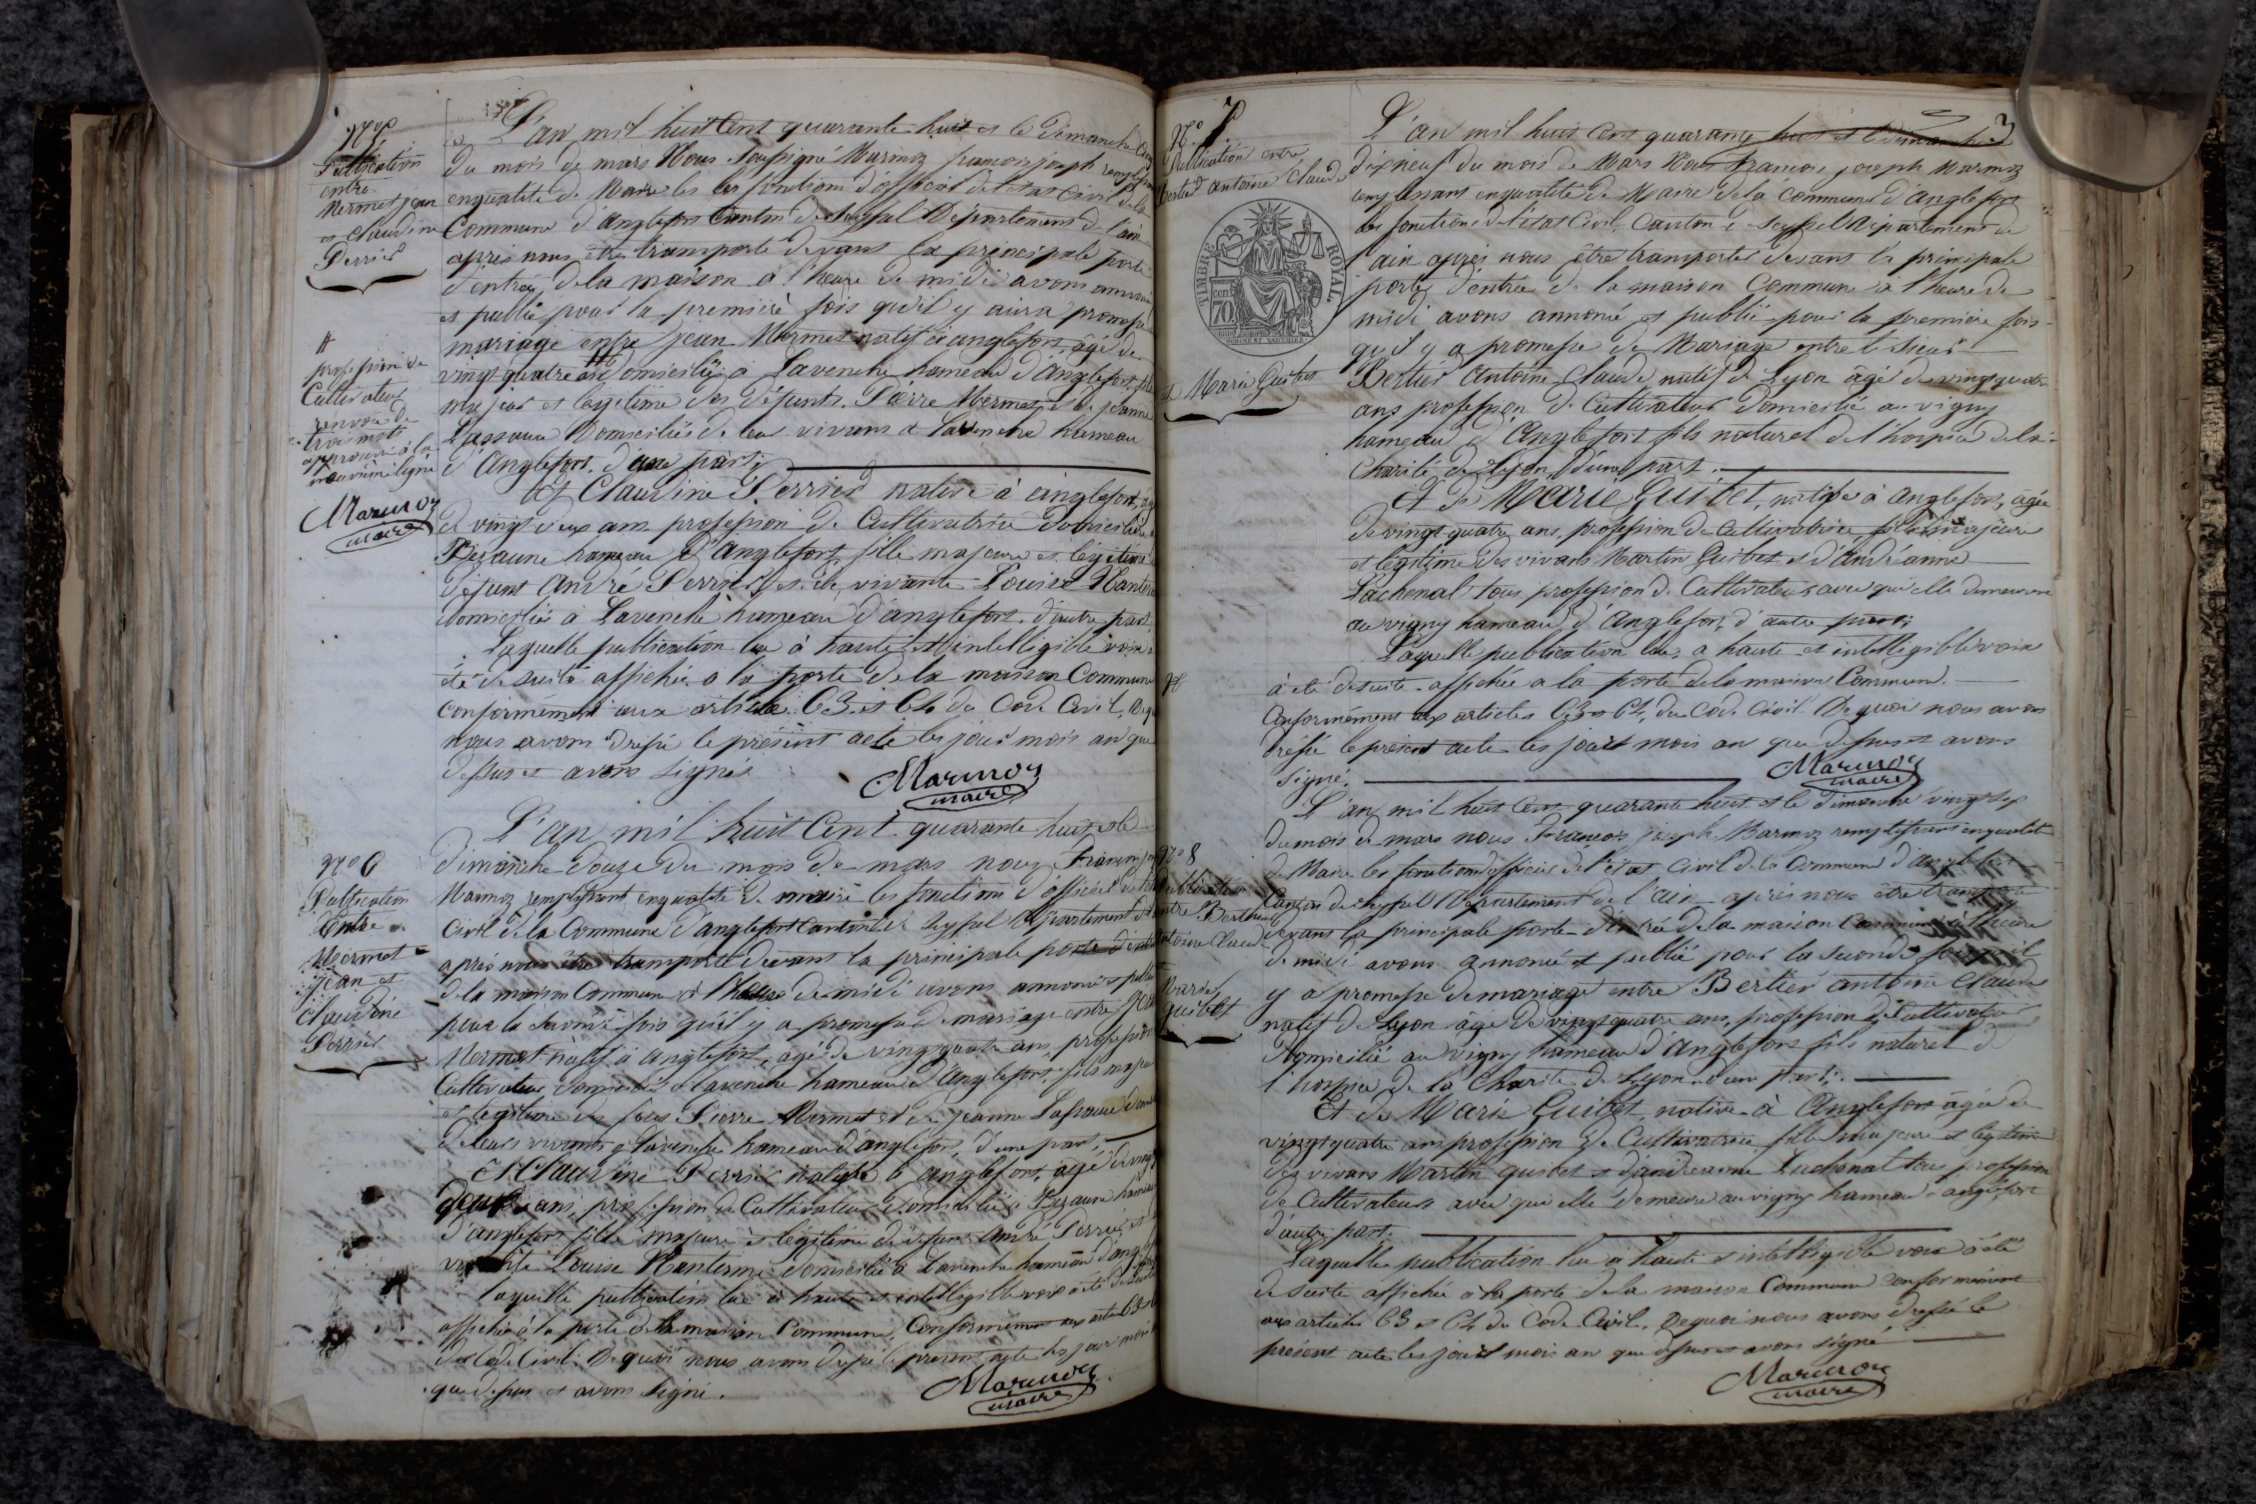 N° 5
Publication
entre
Mermet jean
et Claudine
Perrier
L'an mil huit Cent quarante huit et le Dimanche Cinq
du mois de mars Nous Soussigné Marmoz francois joseph
enqualité de Maire les fonctions d'officier de l'etat Civil de la
Commune d'anglefort Canton de Seyssel Département de l'ain
après nous être transporté devant la principale porte
d'entrée de la maison à l'heure de midi avons annoncé
et publié pour la première fois qu'il y aura promesse
mariage entre jean Mermet natif à anglefort âgé de
vingt quatre ans domicilié à Lavenche hameau d'anglefort fils
majeur et legitime des défunts Pierre Mermet et de jeanne
Lassauce Domiciliés de leur vivant à Lavenche hameau
d'Anglefort. d'une part;
#
profession de
Cultivateur
renvoi de
trois mots
approuvé à la
neuvième ligne
Marmoz
maire
Et Claudine Perrier native à anglefort,
de vingt deux ans profession de Cultivatrice domiciliée
Bezaune hameau d'Anglefort fille majeure et légitime
défunt André Perrier et de vivante Louise
domiciliée à Lavenche hameau d'anglefort. d'autre part
Laquelle publication lue à haute et intelligible voix
été de suite affichée à la porte de la maison Commune
Conformément aux articles 63 et 64 du Code Civil. De
nous avons dressé le présent acte les jour mois an que
dessus et avons signés
Marmoz
maire
N° 6
Publication
Entre
Mermet
jean et
Claudine
Perrier
L'an mil huit Cent quarante huit et le
dimanche douze du mois de mars nous francois
Marmoz remplissant enqualité de maire les fonctions d'officier de l'état
Civil de la Commune d'anglefort Canton de Seyssel Département
après nous être transporté devant la principale porte d'entrée
de la maison Commune à l'heure de midi avons annoncé et publié
pour la seconde fois qu'il y a promesse de mariage entre jean
Mermet natif à anglefort, agé de vingt quatre ans, profession
Cultivateur domicilié à Lavenche hameau d'Anglefort; fils majeur
et legitime des feus Pierre Mermet et de jeanne Lassauce
de leurs vivants à Lavenche hameau d'anglefort, d'une part;
Et Claudine Perrier native à anglefort, agée de vingt
deux ans, profession de Cultivateur domiciliée Bezaune hameau
d'anglefort fille majeure et légitime de défunt André Perrier et
vivante Louise domiciliée à Lavenche hameau
Laquelle publication lue à haute et intelligible voix a été de suite
affichée à la porte de la maison Commune. Conformément aux articles 63 et
du Code Civil. De quoi nous avons dressé le présent acte les jour mois
que dessus et avons signé.
Marmoz
maire
3
N° 7
Publication entre
Bertier antoine Claude
TIMBRE ROYAL
70 cent
et Marie Guibet
L'an mil huit Cent quarante huit et le dimanche
dix neuf du mois de Mars Nous francois joseph Marmoz
remplissant enqualité de Maire de la commune d'anglefort
les fonctions de l'etat Civil Canton de Seyssel Département de
l'ain après nous être transporté devant la principale
porte d'entrée de la maison Commune à l'heure de
midi avons annoncé et publié pour la première fois
qu'il y a promesse de Mariage entre le sieur
Bertier Antoine Claude natif de Lyon âgé de vingt quatre
ans profession de Cultivateur domicilié au vigny
hameau d'Anglefort fils naturel de l'hospice de la
Charité de Lyon d'une part.
Et de Marie Guibet, native à Anglefort, agée
de vingt quatre ans, profession de cultivatrice, fille majeure
et légitime des vivants Martin Guibet et d'andréanne
Lachenal tous profession de Cultivateurs avec qui elle demeure
au vigny hameau d'Anglefort, d'autre part;
Laquelle publication lue, a haute et intelligible voix
à été de suite affichée a la porte de la maison Commune.
Conformément aux articles 63 et 64, du Code Civil De quoi nous avons
dressé le présent acte les jour mois an que dessus et avons
signé.
Marmoz
maire
N° 8
Publication
entre Bertier
antoine Claude
Marie
Guibet
L'an mil huit Cent quarante huit et le dimanche vingt six
du mois de mars nous Francois joseph Marmoz remplissant enqualité
de Maire les fonctions d'officier de l'état Civil de la Commune d'anglefort
Canton de Seyssel Département de l'Ain après nous être transporté
devant la principale porte d'entrée de la maison Commune à l'heure
de midi avons annoncé et publié pour la seconde fois qu'il
y a promesse de mariage entre Bertier antoine Claude
natif de Lyon âgé de vingt quatre ans, profession de Cultivateur
Domicilié au vigny hameau d'anglefort fils naturel de
l'hospice de la Charité de Lyon d'une part;
Et de Marie Guibet native à Anglefort âgée de
vingt quatre ans profession de Cultivatrice fille majeure et légitime
des vivans Martin guibet et d'andreanne Lachenal tous profession
de Cultivateurs avec qui elle demeure au vigny hameau d'anglefort
d'autre part.
Laquelle publication lue à haute et intelligible voix à été
de suite affichée à la porte de la maison Commune Conformément
aux articles 63 et 64 du Code Civil. De quoi nous avons dressé le
présent acte les jour mois an que dessus et avons signé
Marmoz
maire